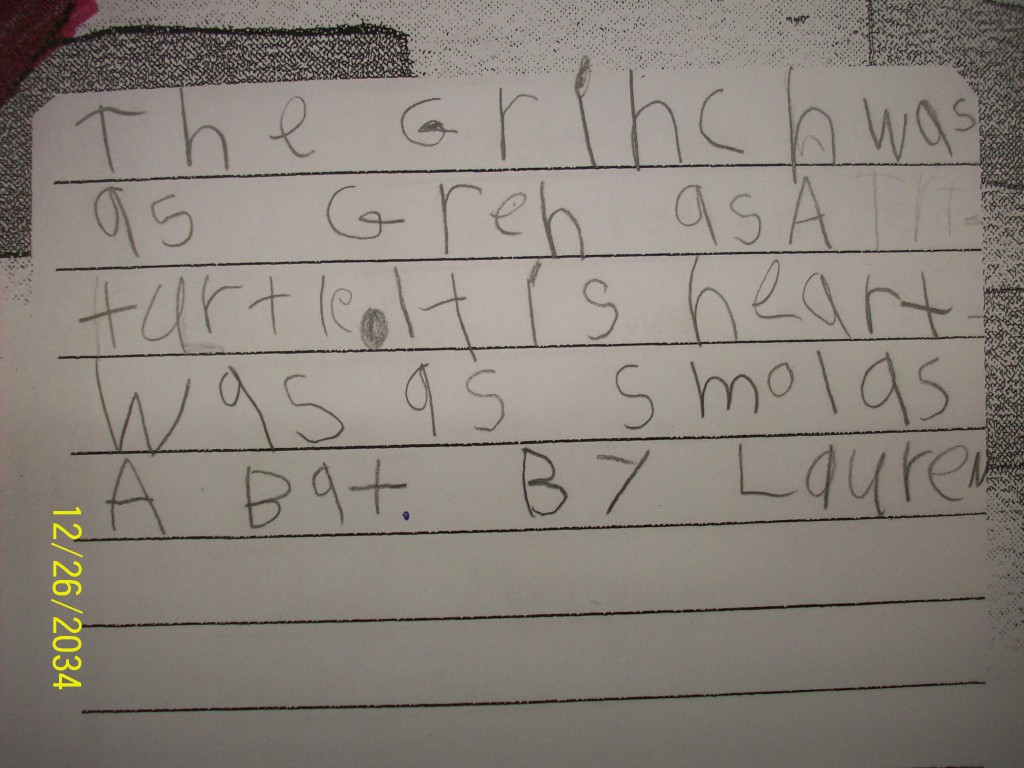 The Grinch was
as Greh as A
turtle. It is heart
was as smol as
A Bat. By Lauren
12/26/2034